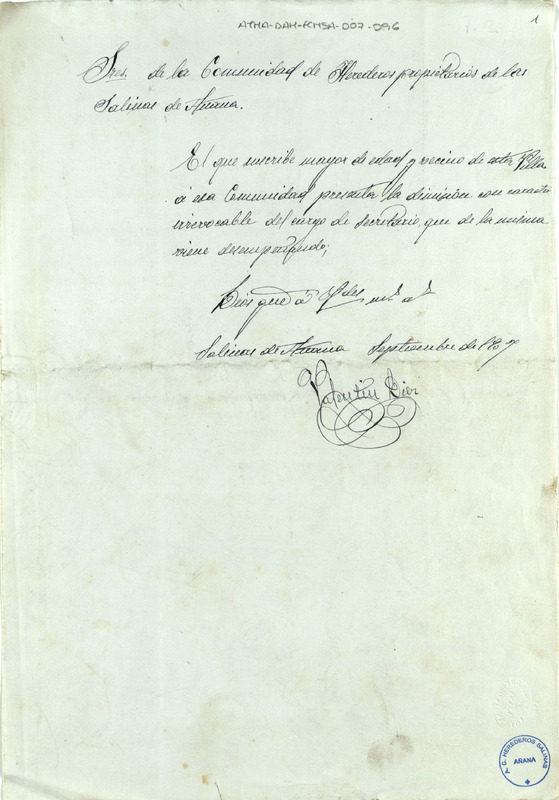 ATHA-DAH-FCHSA-007-096
1
Sres. de la Comunidad de Herederos propietarios de las
Salinas de Añana.
El que suscribe mayor de edad y vecino de esta Villa
á esa Comunidad presenta la dimisión con caracter
irrevocable del cargo de secretario, que de la misma
viene desempeñando;
Dios gue á Vdes ms as
Salinas de Añana Septiembre de 1907
Valentin Diez
C. HEREDEROS SALINAS
AÑANA